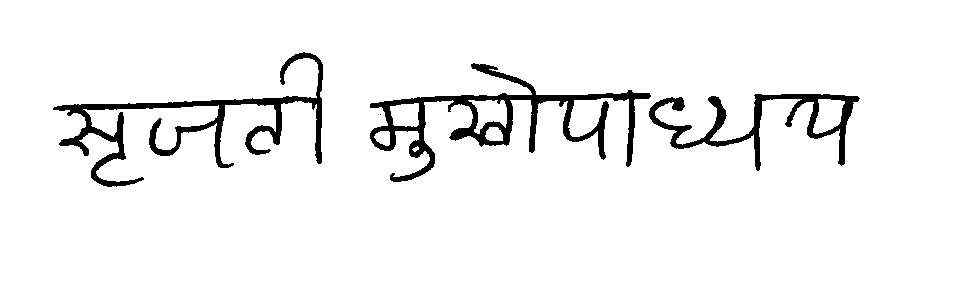 सृजठी मुखोपाध्यय